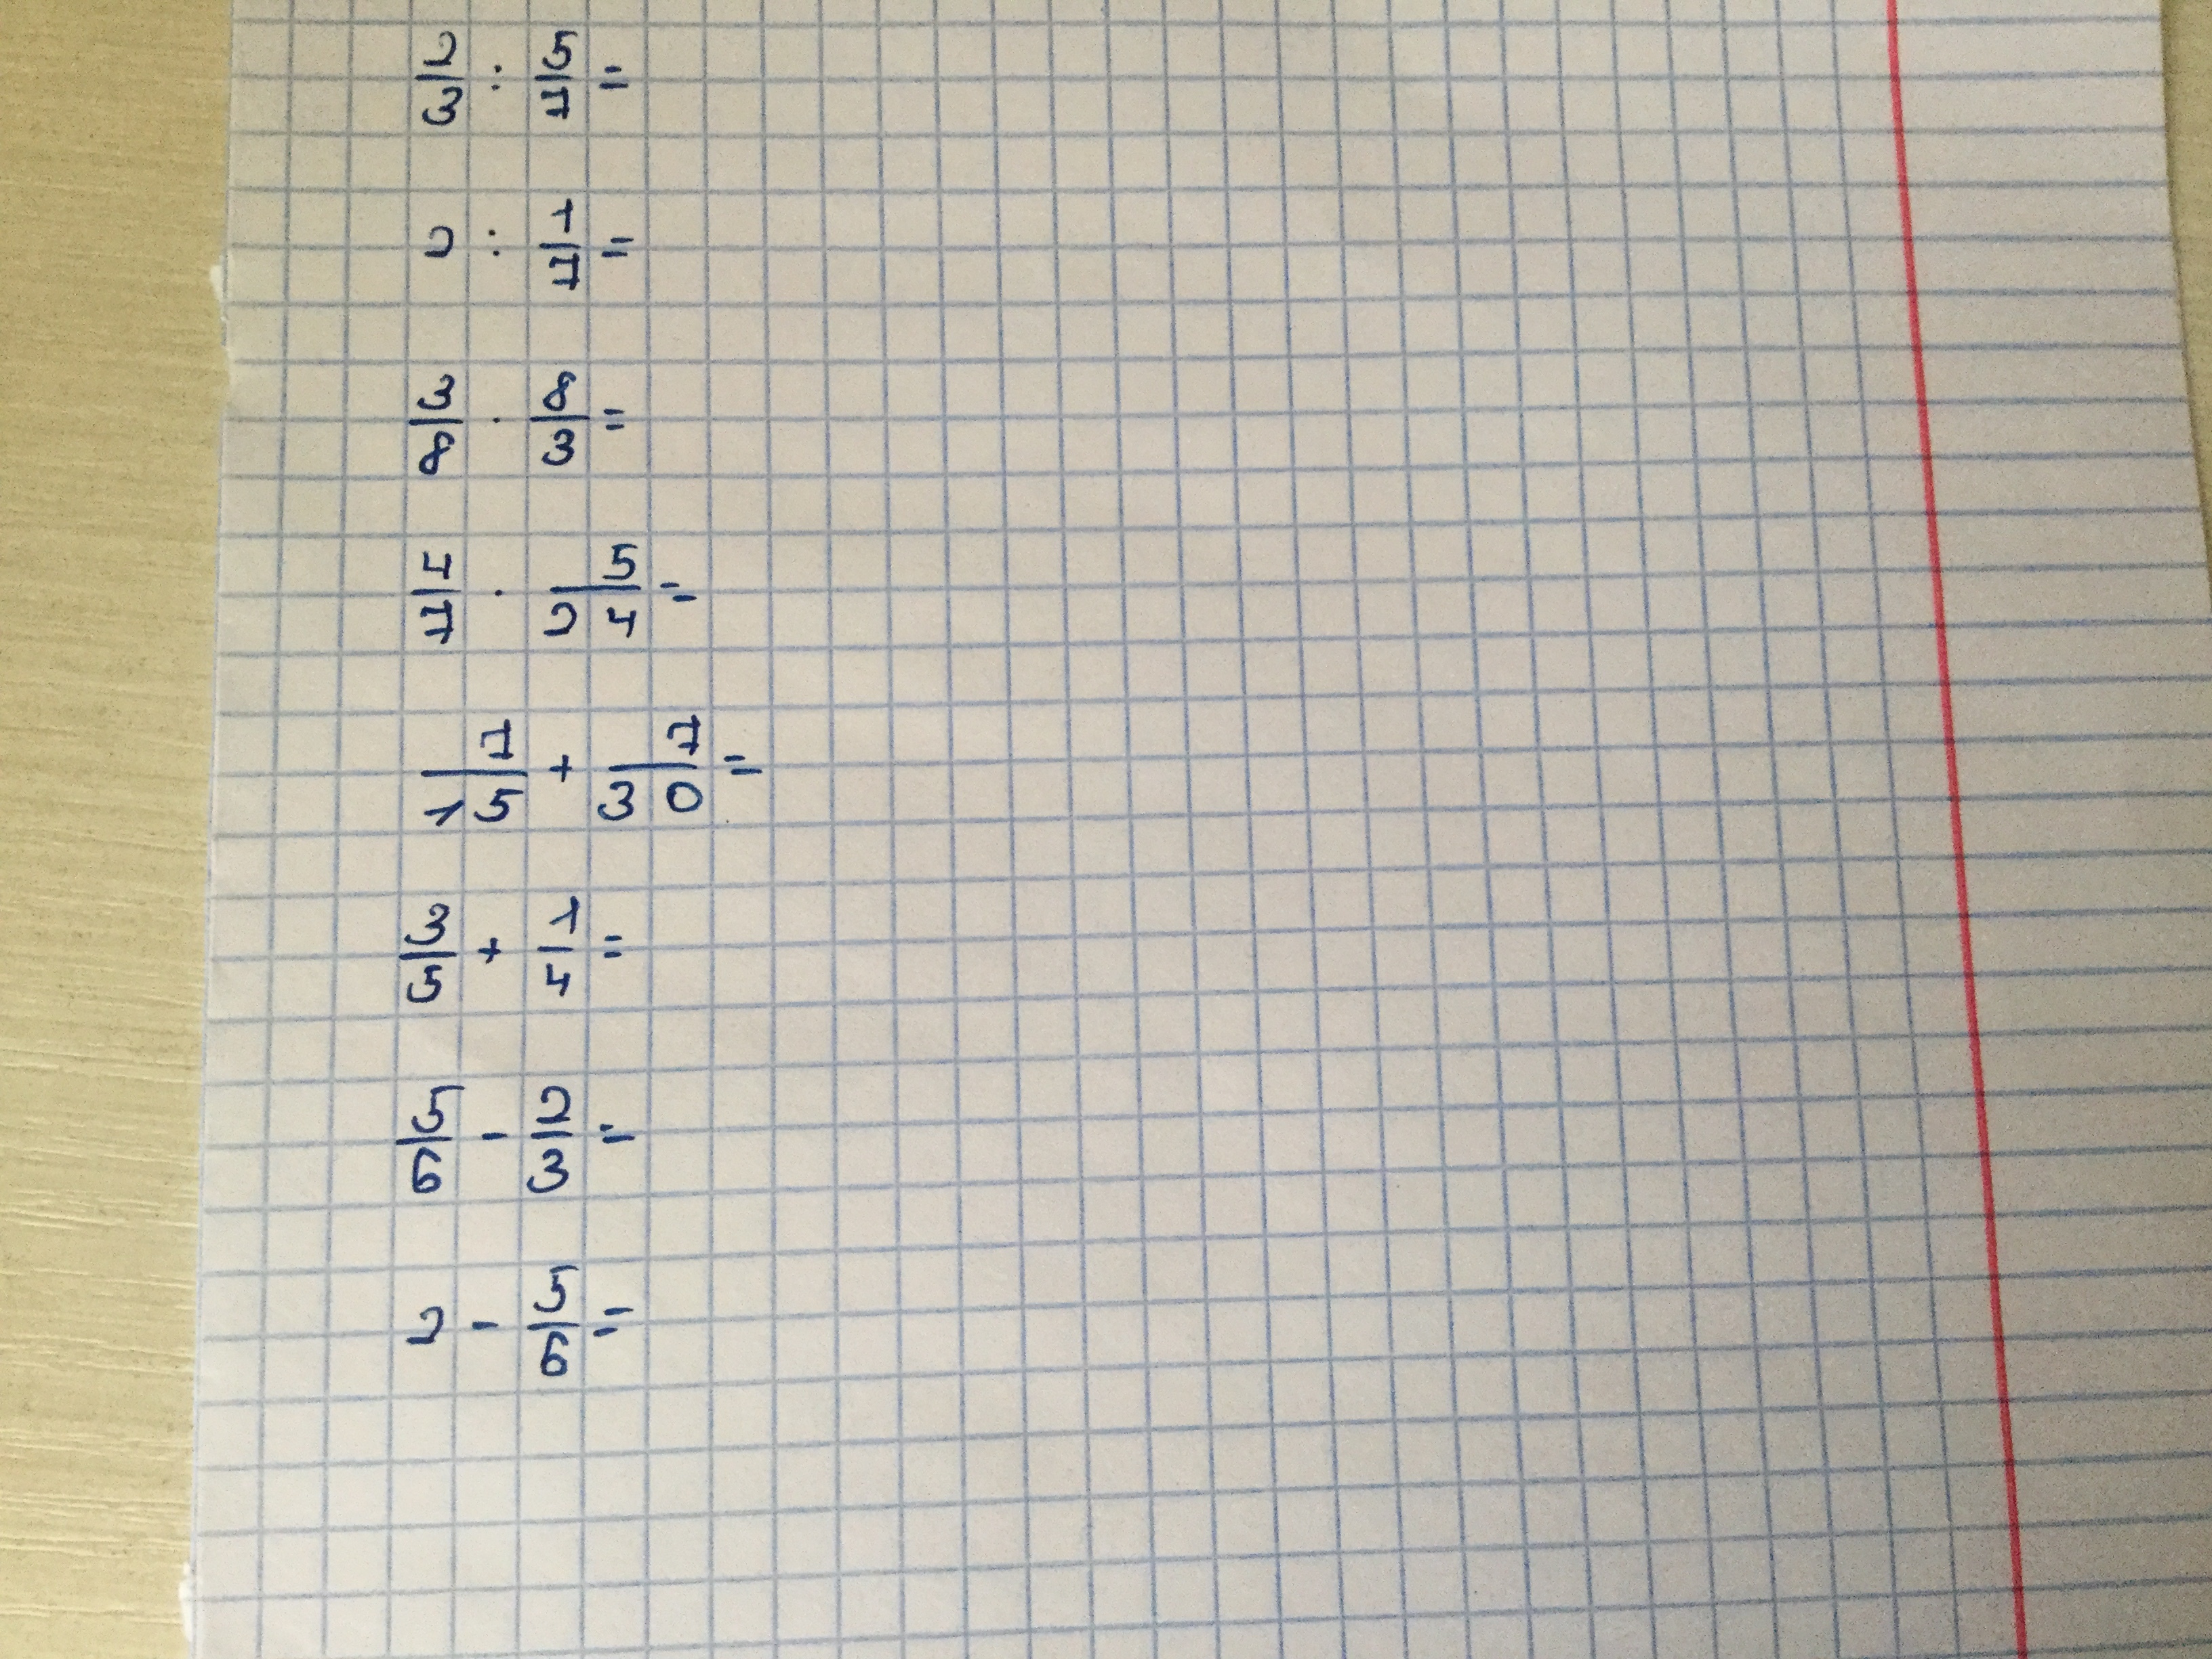 2/3 : 5/7 =
2 : 1/7 =
3/8 · 8/3 =
4/7 · 5/24 =
7/15 + 7/30 =
3/5 + 1/4 =
5/6 - 2/3 =
2 - 5/6 =